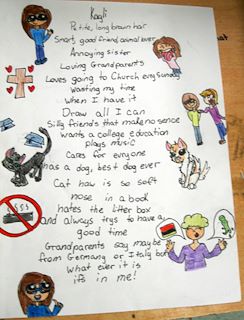 Kagli
Petite, long brown hair
Smart, good friend, animal lover
Annoying sister
Loving Grandparents
Loves going to Church every Sunday
Wasting my time
when I have it
Draw all I can
Silly friends that make no sence
wants a college education
plays music
Cares for everyone
has a dog, best dog ever
Cat how is so soft
nose in a book
hates the litter box
and always trys to have a
good time
Grandparents say maybe
from Germany or Italy but
what ever it is
it's in me!